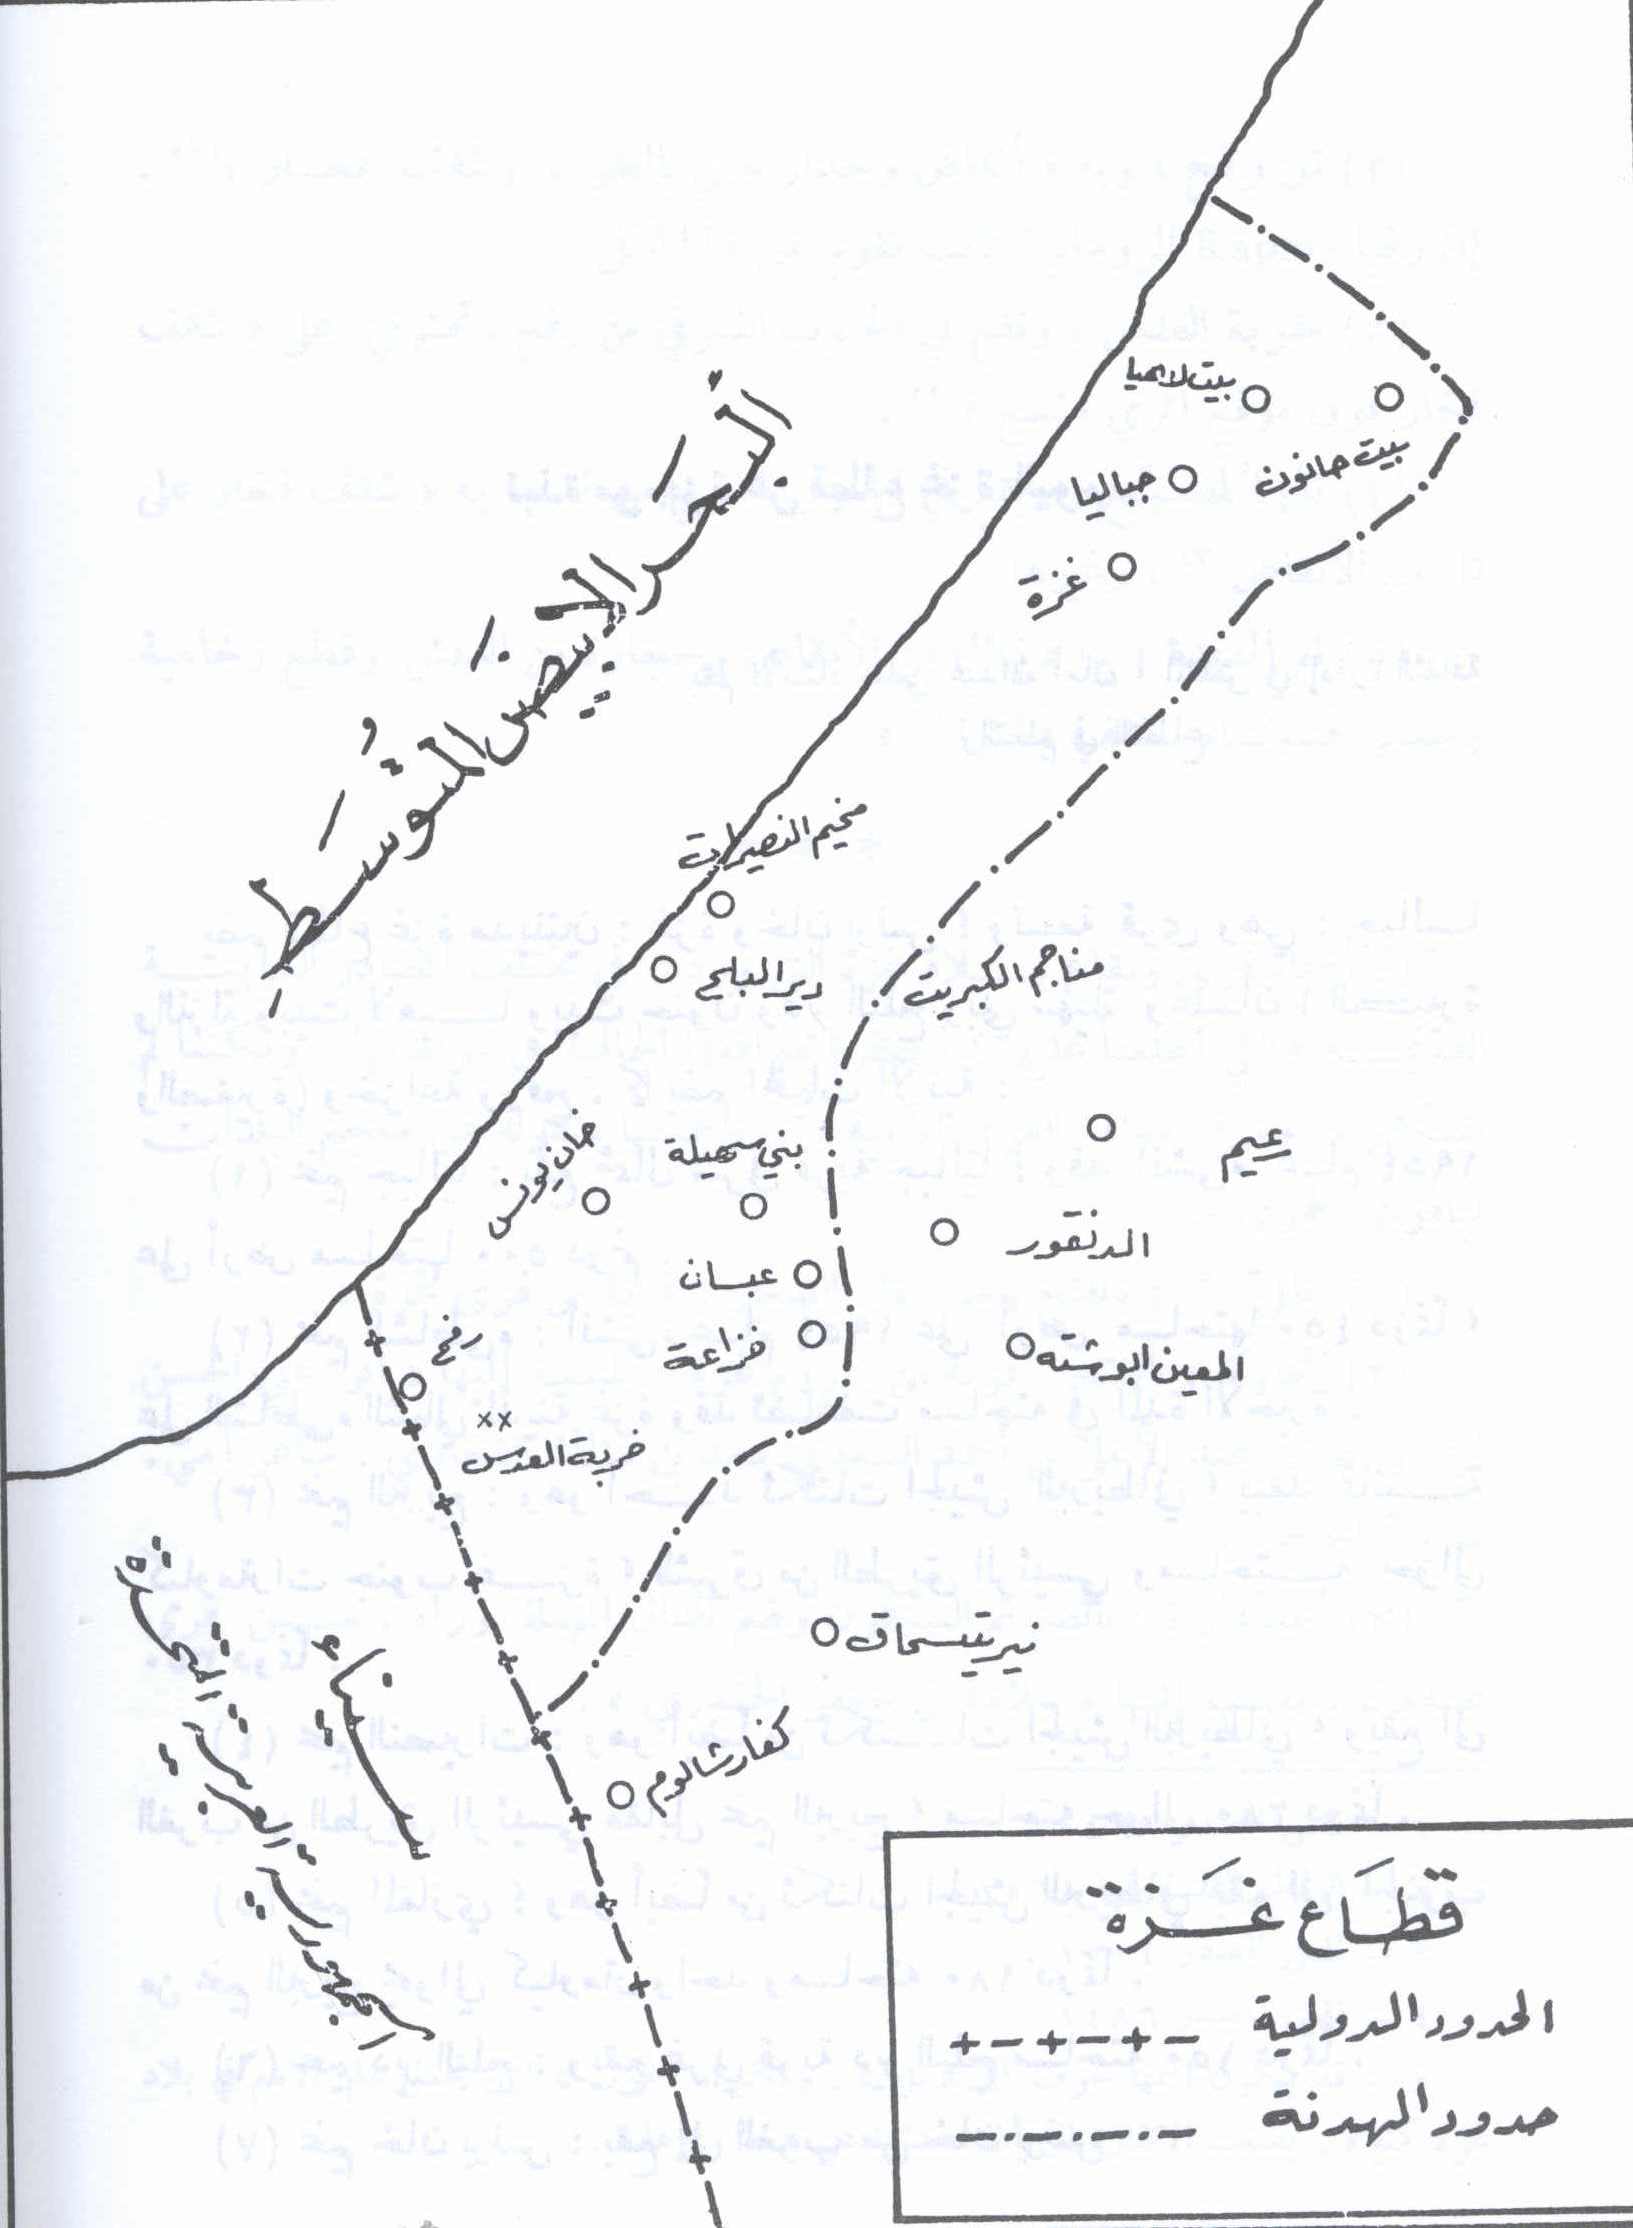 البحر الأبيض المتوسط
بيت لاهيا
بيت حانون
جباليا
غزة
مخيم النصيرات
دير البلح
مناجم الكبريت
خان يونس
بني سهيلة
عيم
الدنقور
عبسان
خزاعة
المعين ابوسته
رفح
xx
خربة العدس
نير يتسحاق
كفار شالوم
سيناء
الجمهورية العربية المتحدة
قطاع غزة
الحدود الدولية
حدود الهدنة